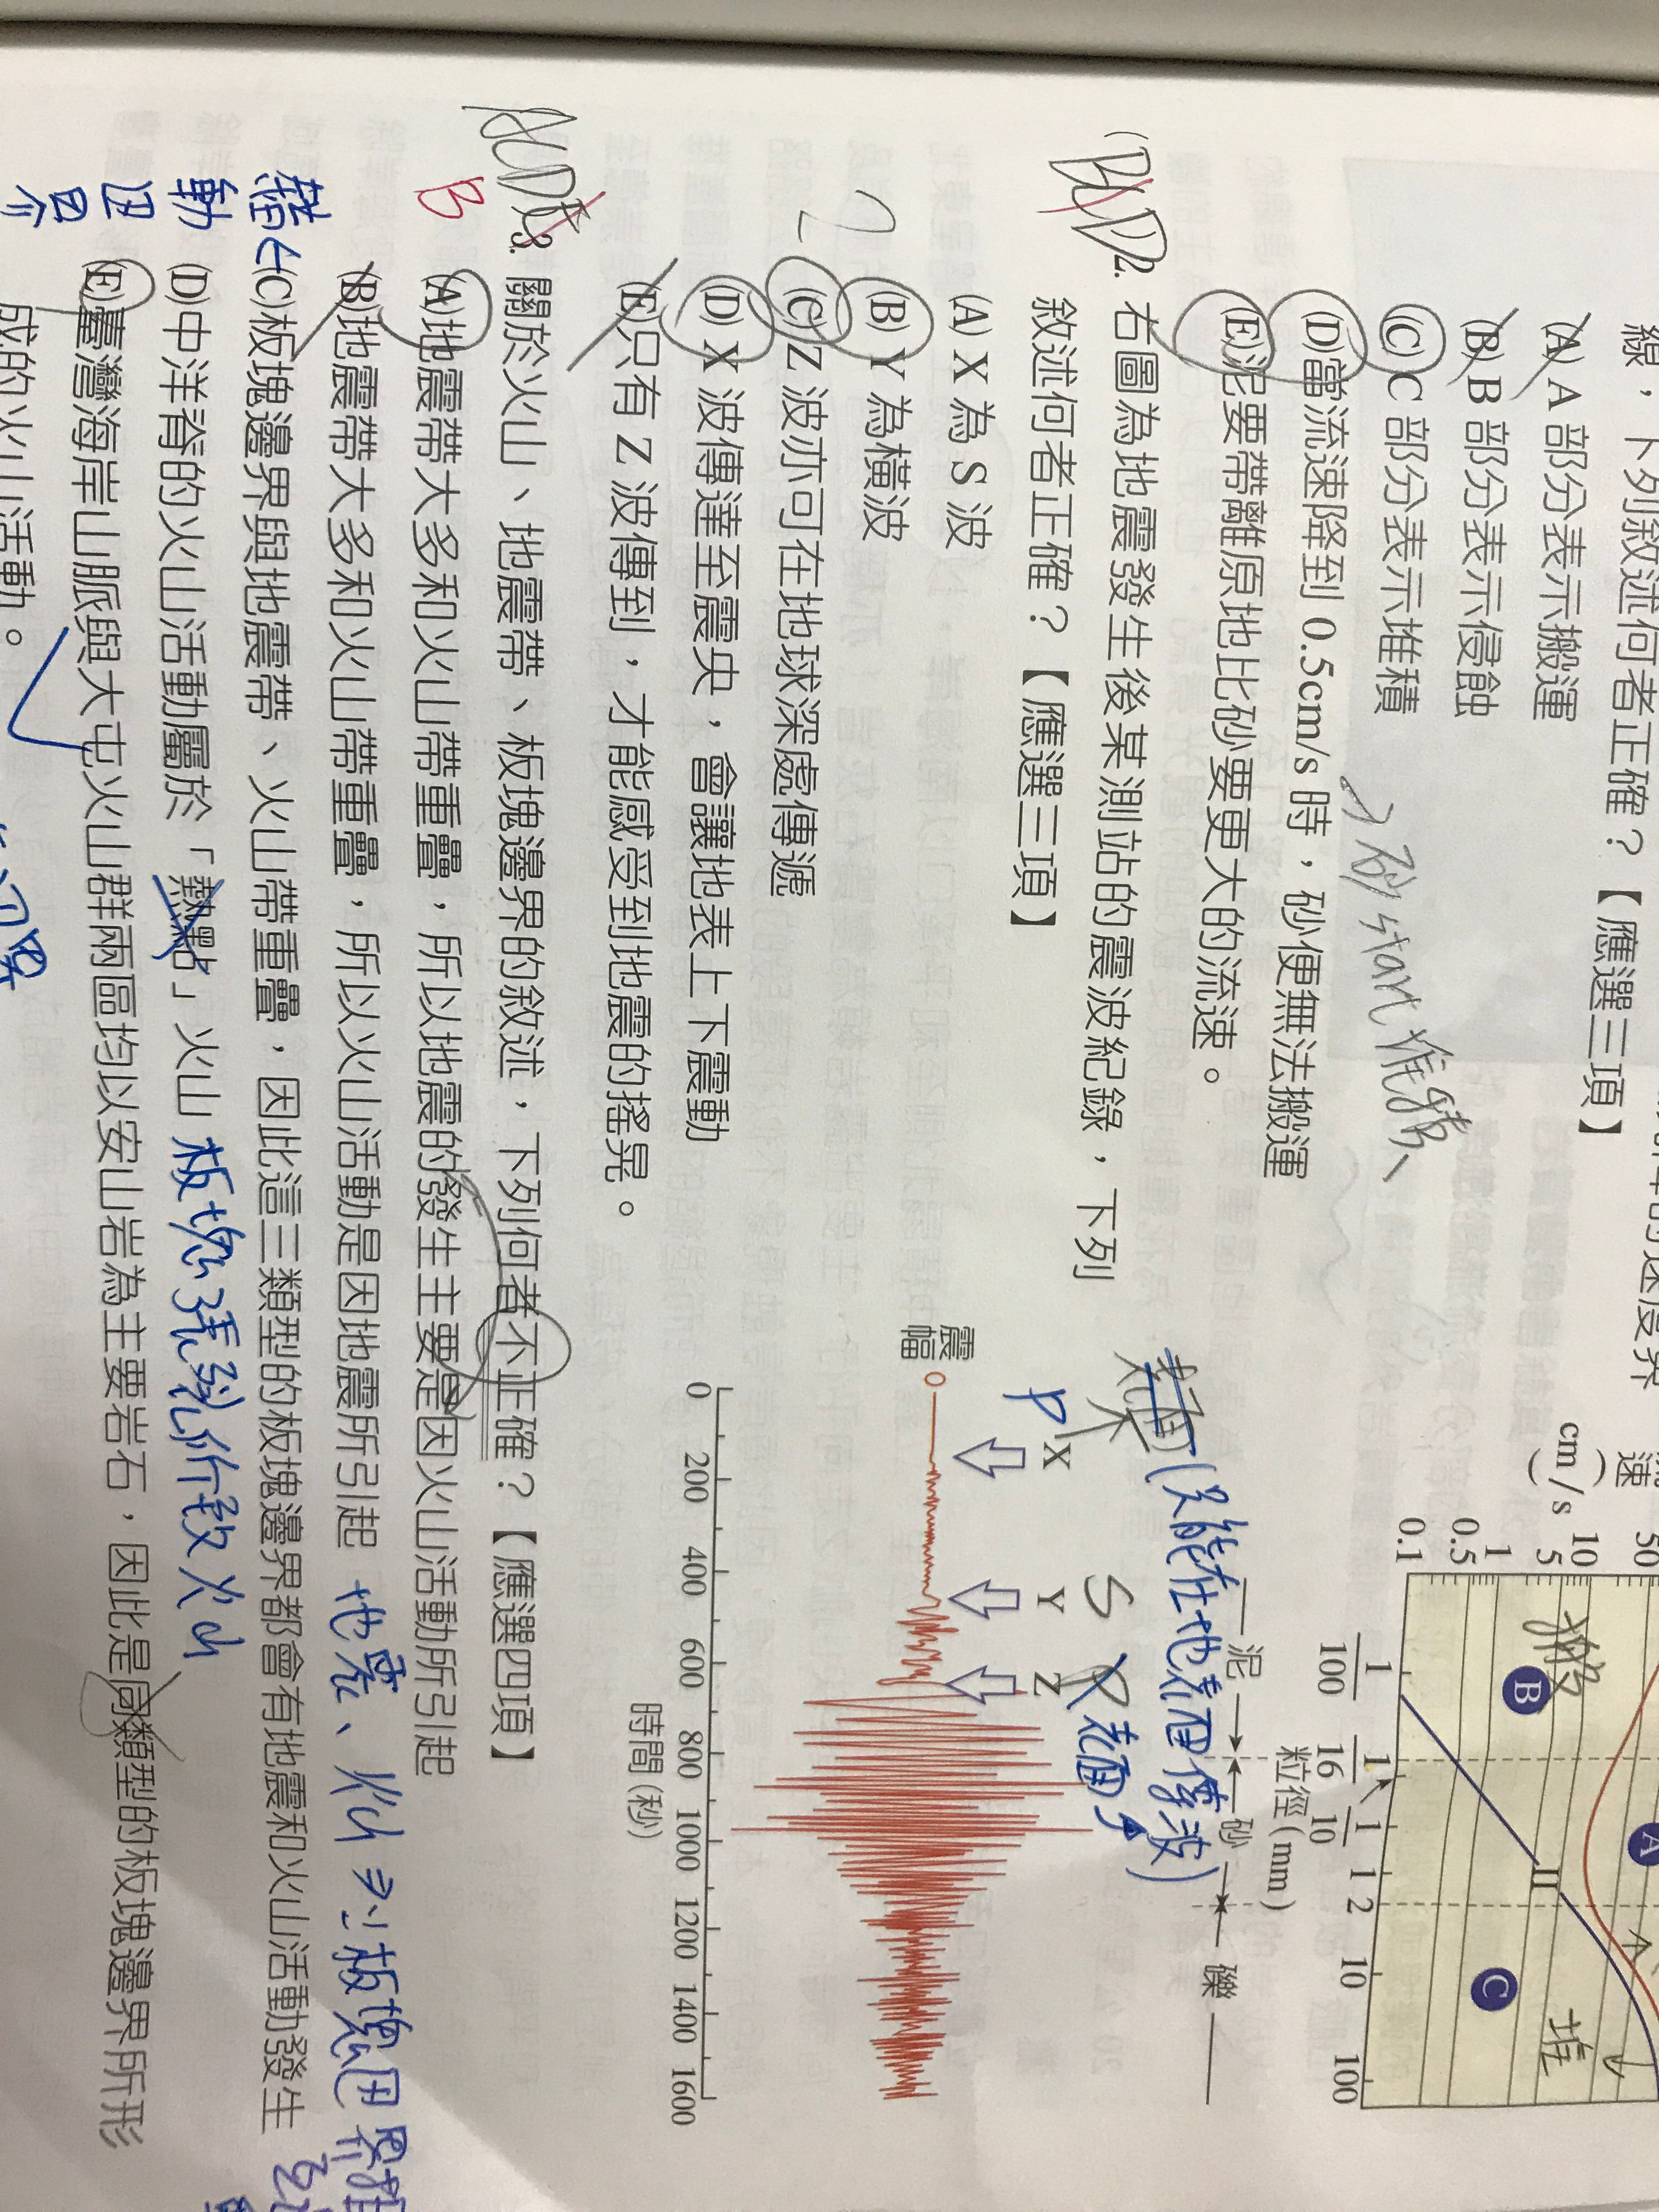 線，下列敘述何者正確？【應選三項】
(A) A 部分表示搬運
(B) B 部分表示侵蝕
(C) C 部分表示堆積
(D)當流速降到 0.5cm/s 時，砂便無法搬運
(E)泥要帶離原地比砂要更大的流速。
砂 start 堆積
速
cm/s
50
10
5
1
0.5
0.1
A
B
C
II
堆
1/100
1/16
1/10
1
2
10
100
粒徑(mm)
泥
砂
礫
2. 右圖為地震發生後某測站的震波紀錄，下列
敘述何者正確？【應選三項】
(A) X 為 S 波
(B) Y 為橫波
(C) Z 波亦可在地球深處傳遞
(D) X 波傳達至震央，會讓地表上下震動
(E)只有 Z 波傳到，才能感受到地震的搖晃。
(只能在地表面傳波)
P
S
表面
X
Y
Z
震幅
0
0 200 400 600 800 1000 1200 1400 1600
時間(秒)
B
3. 關於火山、地震帶、板塊邊界的敘述，下列何者不正確？【應選四項】
(A)地震帶大多和火山帶重疊，所以地震的發生主要是因火山活動所引起
(B)地震帶大多和火山帶重疊，所以火山活動是因地震所引起
地震、火山
板塊邊界
(C)板塊邊界與地震帶、火山帶重疊，因此這三類型的板塊邊界都會有地震和火山活動發生
錯
動
邊
界
(D)中洋脊的火山活動屬於「熱點」火山
板塊張裂
火山
(E)臺灣海岸山脈與大屯火山群兩區均以安山岩為主要岩石，因此是同類型的板塊邊界所形
成的火山活動。